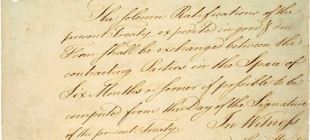 The solemn Ratifications of the
present Treaty expedited in good & due
Form shall be exchanged between the
contracting Parties in the Space of
Six Months or sooner if possible to be
computed from the Day of the Signature
of the present Treaty. In Witness